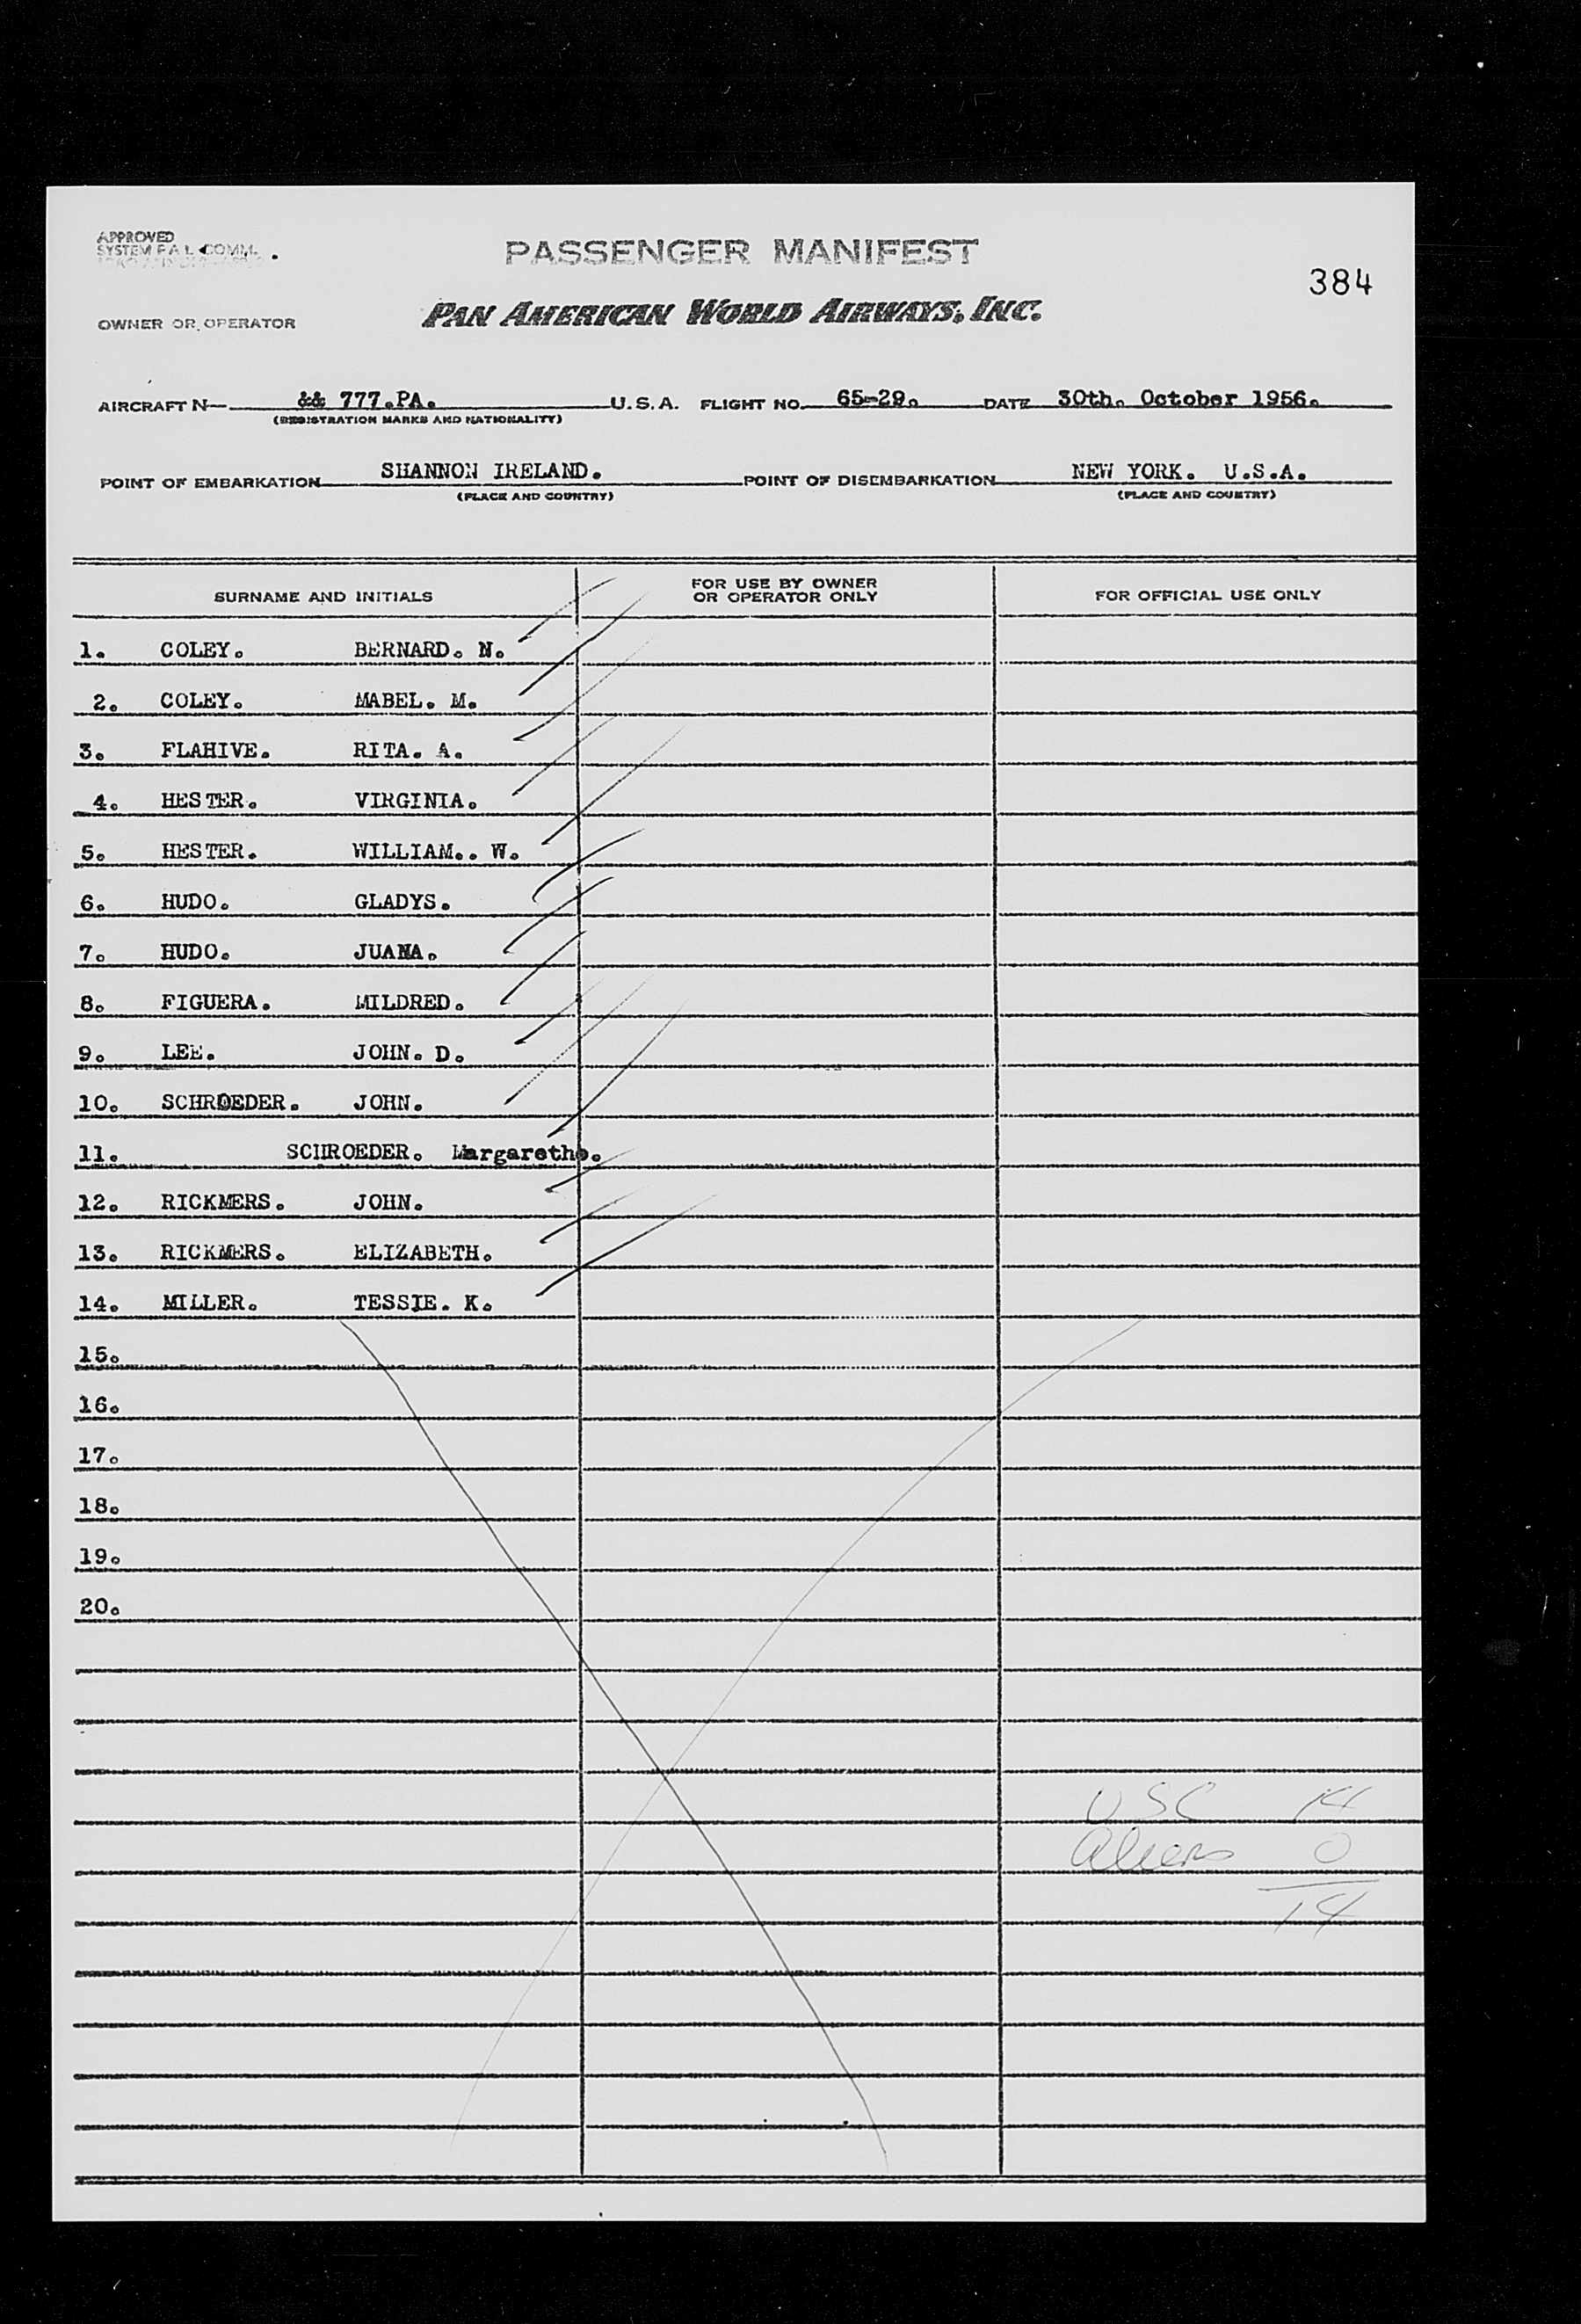 APPROVED
SYSTEM F.A.L. COMM.
PASSENGER MANIFEST
384
PAN AMERICAN WORLD AIRWAYS, INC.
OWNER OR OPERATOR
AIRCRAFT N && 777.PA. U.S.A. FLIGHT NO. 65-29. DATE 30th. October 1956.
(REGISTRATION MARKS AND NATIONALITY)
POINT OF EMBARKATION SHANNON IRELAND. POINT OF DISEMBARKATION NEW YORK. U.S.A.
(PLACE AND COUNTRY) (PLACE AND COUNTRY)
SURNAME AND INITIALS
FOR USE BY OWNER
OR OPERATOR ONLY
FOR OFFICIAL USE ONLY
1. COLEY. BERNARD. N.
2. COLEY. MABEL. M.
3. FLAHIVE. RITA. A.
4. HESTER. VIRGINIA.
5. HESTER. WILLIAM.. W.
6. HUDO. GLADYS.
7. HUDO. JUANA.
8. FIGUERA. MILDRED.
9. LEE. JOHN. D.
10. SCHROEDER. JOHN.
11. SCHROEDER. Margarethe.
12. RICKMERS. JOHN.
13. RICKMERS. ELIZABETH.
14. MILLER. TESSIE. K.
15.
16.
17.
18.
19.
20.
USC 14
Aliens 0
14